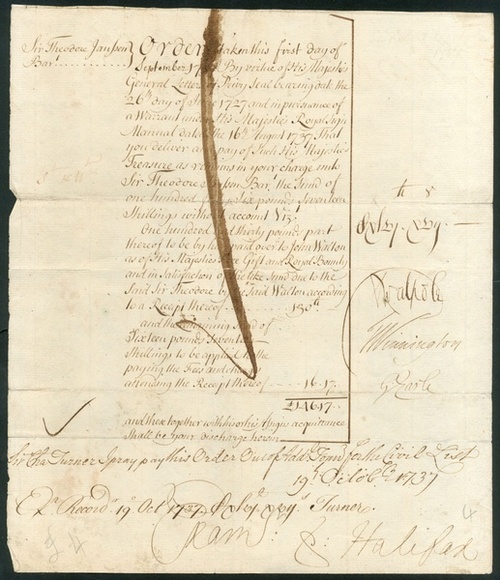 Sir Theodore Janssen Bar.t
Order taken this first day of
September 17 By virtue of His Majestys
General Letters Privy Seal bearing date the
26th day of 1727 and in pursuance of
a Warrant under His Majestys Royal Sign
Manual dated the 16th August 1737 That
you deliver and pay of such His Majestys
Treasure as remains in your charge unto
Sir Theodore Janssen Bar.t the Sum of
one hundred forty six pounds seventeen
Shillings without account Viz.
One hundred and thirty pounds part
thereof to be by him paid over to John Walton
as of His Majestys Free Gift and Royal Bounty
and in Satisfaction of the like Sum due to the
said Sir Theodore by the said Walton according
to a Receipt thereof 130
and the remaining sum of
Sixteen pounds seventeen
Shillings to be applied to the
paying the Fees and
attending the Receipt thereof 16.17
£146.17
and these together with his or his Assigns acquittance
Shall be Your discharge herein
RWalpole
TWinnington
GEarle
Turner I pray pay this Order Out of for the Civil List
19th Octob.r 1737
Ex.r Record.r 19 Oct 1737 Turner
Halifax